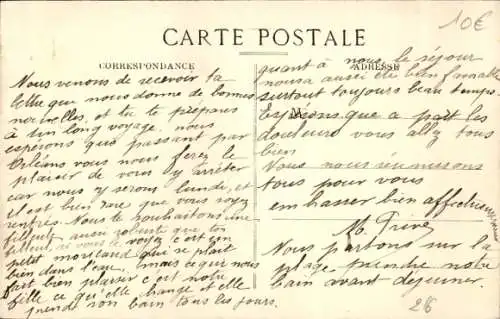 10€
CARTE POSTALE
CORRESPONDANCE
Nous venons de recevoir ta
lettre que nous donne de bonnes
nouvelles, et tu te prépares
à un long voyage. nous
espérons que passant par
Orléans vous nous ferez le
plaisir de vous y arrêter
car nous y serons lundi, et
il est bien rare que vous soyez
rentrés. Nous te souhaitons une
filleule aussi robuste que ton
filleul si vous le voyez c'est un
petit qui se plait
bien dans l'eau, mais ce qui nous
fait bien plaisir c'est notre
fille ce qu'elle change et elle
prend son bain tous les jours.
ADRESSE
quant à nous le séjour
nous a aussi été bien favorable
surtout toujours beau temps.
M
Espérons que à part les
douleurs vous allez tous
bien
Vous nous réunissons
tous pour vous
embrasser bien affectueusement
M.
Nous partons sur la
plage prendre notre
bain avant déjeuner.